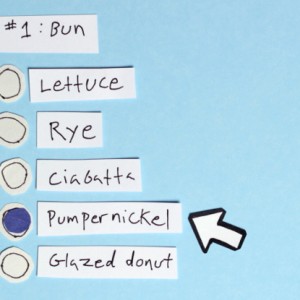 #1: Bun
Lettuce
Rye
Ciabatta
Pumpernickel
Glazed donut